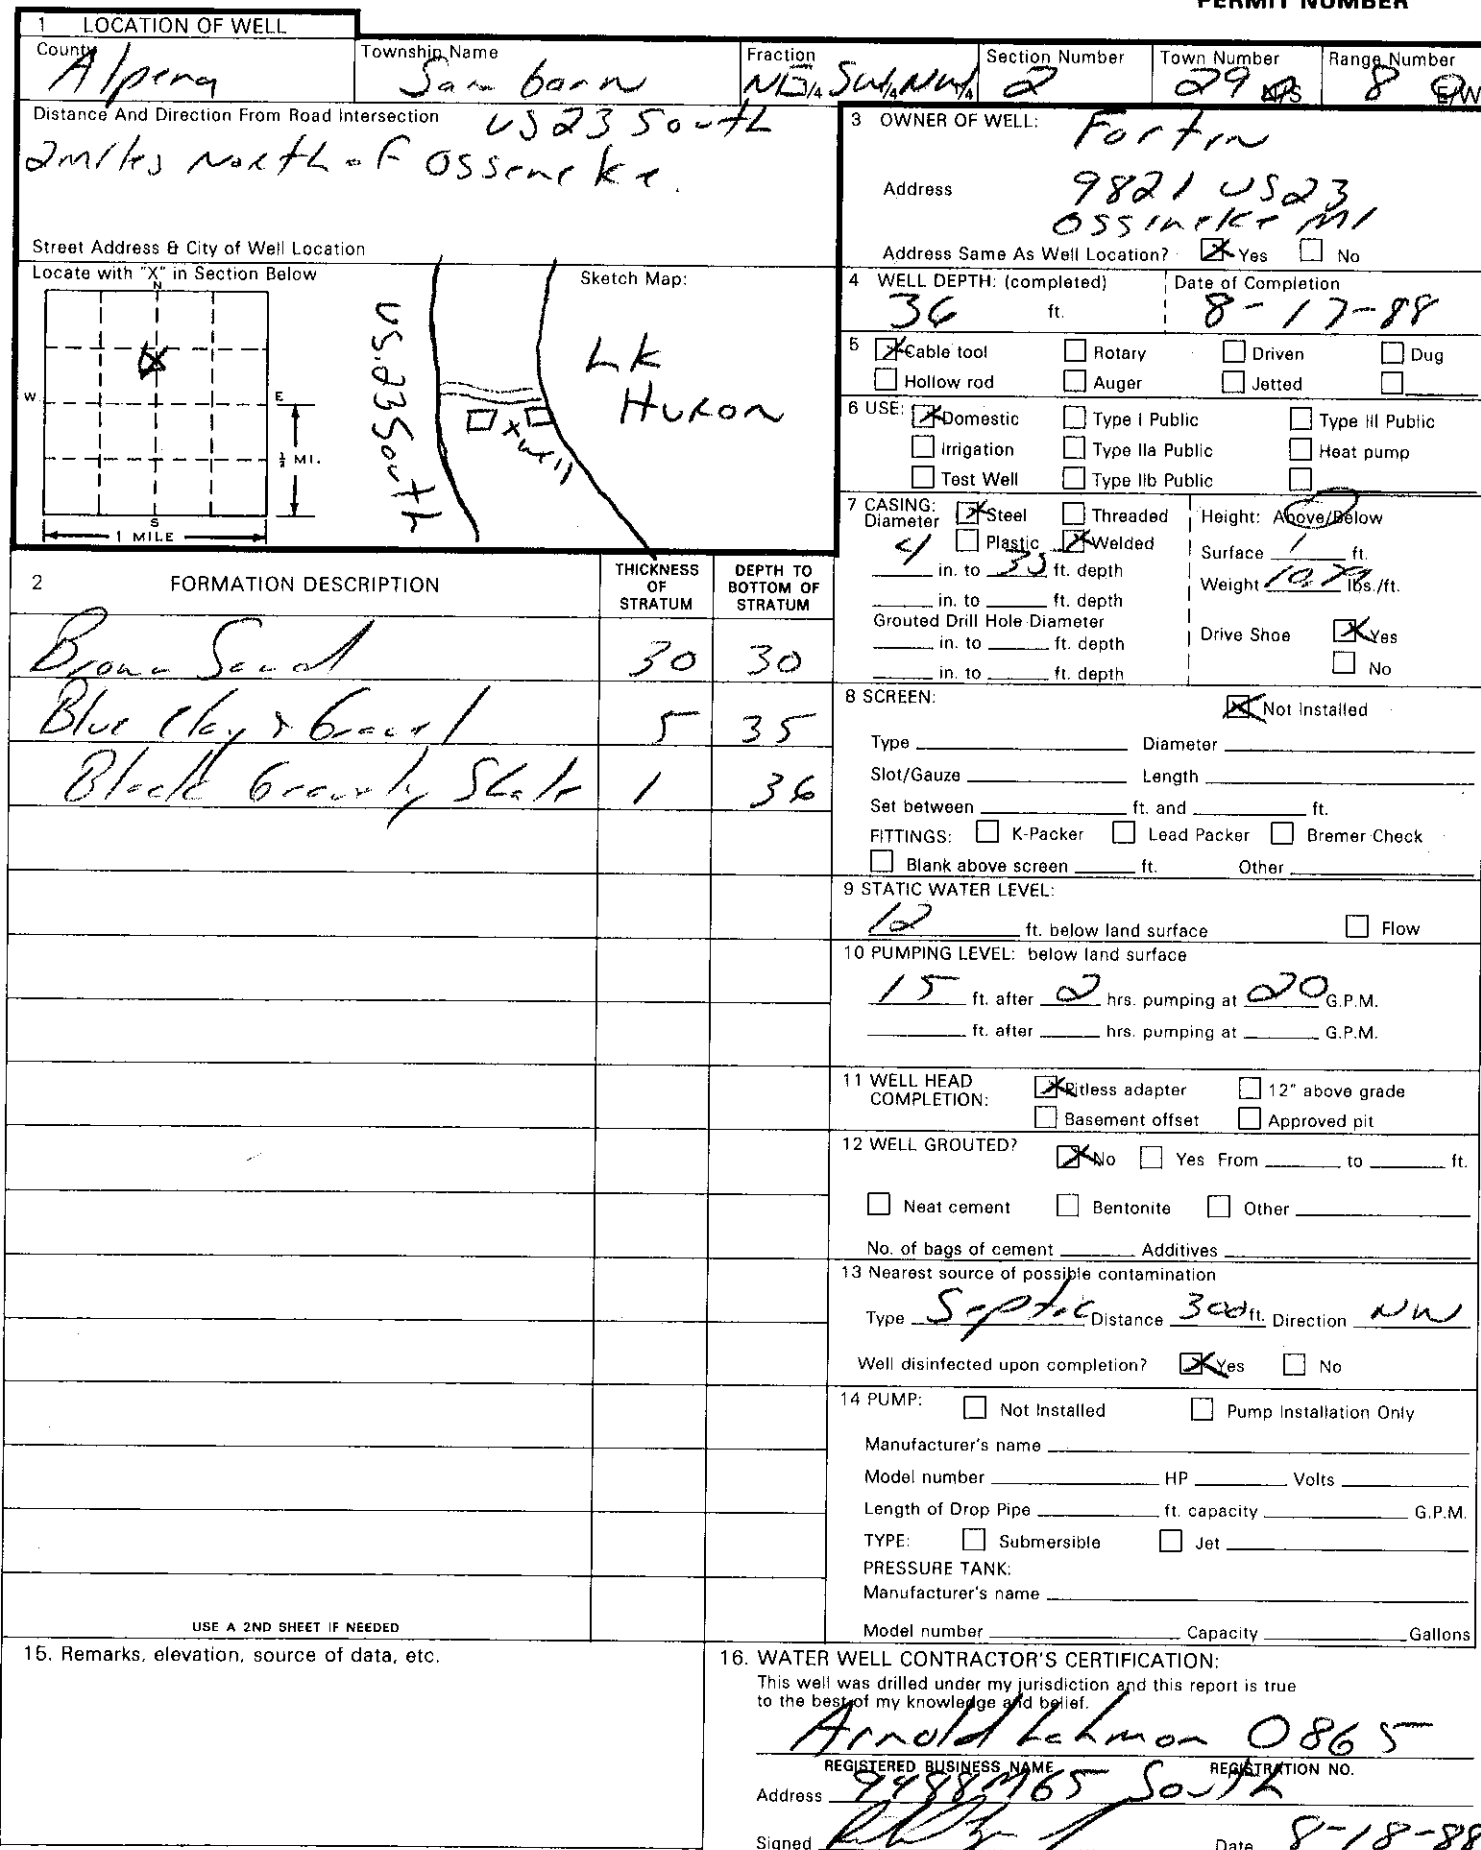 PERMIT NUMBER
1 LOCATION OF WELL
County
Alpena
Township Name
Sanborn
Fraction
NE 1/4 SW 1/4 NW 1/4
Section Number
2
Town Number
29 N/S
Range Number
8 E/W
Distance And Direction From Road Intersection
US 23 South
2 miles North of Osseneke.
Street Address & City of Well Location
Locate with "X" in Section Below
N
W
E
S
½ MI.
1 MILE
Sketch Map:
US. 23 South
X well
LK
Huron
2 FORMATION DESCRIPTION
THICKNESS OF STRATUM
DEPTH TO BOTTOM OF STRATUM
Brown Sand 30 30
Blue Clay & Gravel 5 35
Black Gravely Shale 1 36
USE A 2ND SHEET IF NEEDED
3 OWNER OF WELL:
Fortin
Address
9821 US23
Ossineke MI
Address Same As Well Location? X Yes No
4 WELL DEPTH: (completed)
36 ft.
Date of Completion
8-17-88
5 X Cable tool Rotary Driven Dug
Hollow rod Auger Jetted
6 USE: X Domestic Type I Public Type III Public
Irrigation Type IIa Public Heat pump
Test Well Type IIb Public
7 CASING: X Steel Threaded
Diameter Plastic X Welded
4 in. to 35 ft. depth
in. to ft. depth
Grouted Drill Hole Diameter
in. to ft. depth
in. to ft. depth
Height: Above/Below
Surface 1 ft.
Weight 10.79 lbs./ft.
Drive Shoe X Yes
No
8 SCREEN: X Not Installed
Type Diameter
Slot/Gauze Length
Set between ft. and ft.
FITTINGS: K-Packer Lead Packer Bremer Check
Blank above screen ft. Other
9 STATIC WATER LEVEL:
12 ft. below land surface Flow
10 PUMPING LEVEL: below land surface
15 ft. after 2 hrs. pumping at 20 G.P.M.
ft. after hrs. pumping at G.P.M.
11 WELL HEAD COMPLETION: X Pitless adapter 12" above grade
Basement offset Approved pit
12 WELL GROUTED? X No Yes From to ft.
Neat cement Bentonite Other
No. of bags of cement Additives
13 Nearest source of possible contamination
Type Septic Distance 300 ft. Direction NW
Well disinfected upon completion? X Yes No
14 PUMP: Not Installed Pump Installation Only
Manufacturer's name
Model number HP Volts
Length of Drop Pipe ft. capacity G.P.M.
TYPE: Submersible Jet
PRESSURE TANK:
Manufacturer's name
Model number Capacity Gallons
15. Remarks, elevation, source of data, etc.
16. WATER WELL CONTRACTOR'S CERTIFICATION:
This well was drilled under my jurisdiction and this report is true
to the best of my knowledge and belief.
Arnold Lehman 0865
REGISTERED BUSINESS NAME REGISTRATION NO.
Address 9488 M65 South
Signed Date 8-18-88